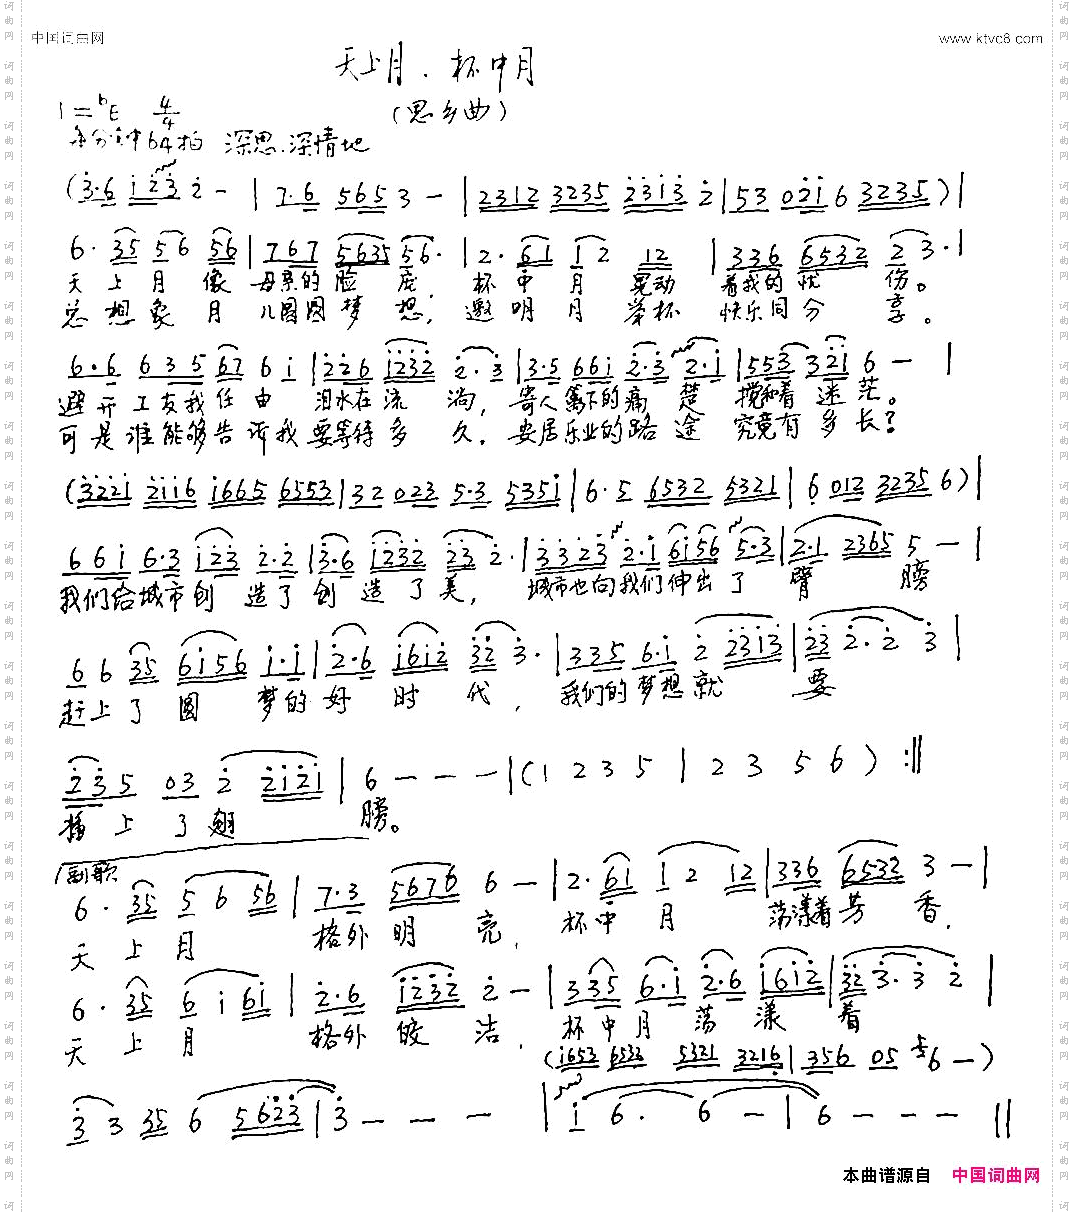 中国词曲网 www.ktvc8.com
天上月.杯中月
(思乡曲)
1=bE 4/4
每分钟64拍 深思.深情地
(3·6 123 2 - | 7·6 565 3 - | 2312 3235 2313 2 | 53 021 6 3235) |
6· 35 56 56 | 767 5635 56· | 2· 61 12 12 | 336 6532 23· |
天上月像母亲的脸庞,杯中月晃动着我的忧伤。
总想象月儿圆圆梦想,邀明月举杯快乐同分享。
6·6 635 67 6 1 | 226 1232 2·3 | 3·5 661 2·3 2·1 | 553 321 6 - |
避开工友我任由泪水在流淌,寄人篱下的痛楚搅和着迷茫。
可是谁能够告诉我要等待多久,安居乐业的路途究竟有多长?
(3221 2116 1665 6553 | 32 023 5·3 5351 | 6·5 6532 5321 | 6 012 3235 6) |
661 6·3 123 2·2 | 3·6 1232 23 2· | 3323 2·1 6156 5·3 | 2·1 2365 5 - |
我们给城市创造了创造了美,城市也向我们伸出了臂膀
6 6 35 6156 1·1 | 2·6 1612 32 3· | 335 6·1 2 2313 | 23 2·2 3 |
赶上了圆梦的好时代,我们的梦想就要
235 03 2 2121 | 6 - - - | (1 2 3 5 | 2 3 5 6) :||
插上了翅膀。
副歌
6· 35 5 6 56 | 7·3 5676 6 - | 2· 61 1 2 12 | 336 6532 3 - |
天上月格外明亮,杯中月荡漾着芳香,
6· 35 6 1 61 | 2·6 1232 2 - | 335 6·1 2·6 1612 | 32 3·3 2 |
天上月格外皎洁,杯中月荡漾着
(1653 6532 5321 3216 | 356 05 56 -)
3 3 35 6 5623 | 3 - - - | 1 6· 6 - | 6 - - - ||
本曲谱源自 中国词曲网